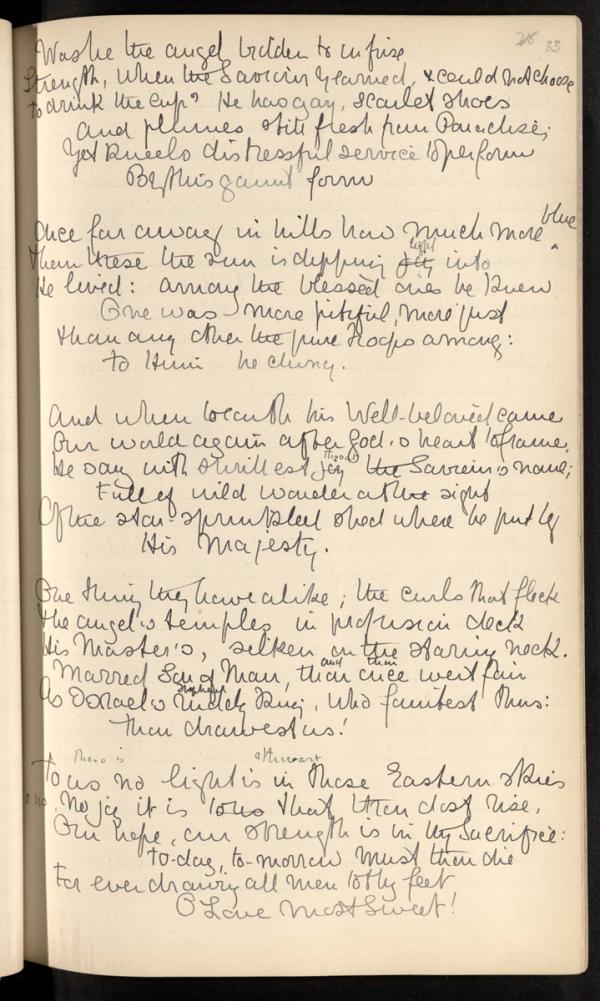 33
Was he the angel bidden to infuse
Strength, when the Saviour yearned, & could not choose
To drink the cup? He has gay, scarlet shoes
And plumes still fresh from Paradise;
Yet kneels distressful service to perform
By this gaunt form
blue
Once far away in hills how much more
light
than these the sun is dipping into
He lived: among the blessèd ones he knew
One was more pitiful, more just
than any other the pure troops among:
To Him he clung.
And when to earth his Well-beloved came
Our world again after God's heart to frame,
He sang with shrillest joy the Saviour's name;
Full of wild wonder at the sight
Of the star-sprinkled shed where he put by
His Majesty.
One thing they have alike; the curls that fleck
the angel's temples in profusion deck
His Master's, silken on the staring neck.
and then
Marred Son of Man, thou once wert fair
As Israel's ruddy King, who faintest thus:
Thou drawest us!
There is athwart
To us no light is in those Eastern skies
No joy it is to us that thou dost rise,
Our hope, our strength is in thy Sacrifice:
To-day, to-morrow must thou die
For ever drawing all men to thy feet
O Love most Sweet!